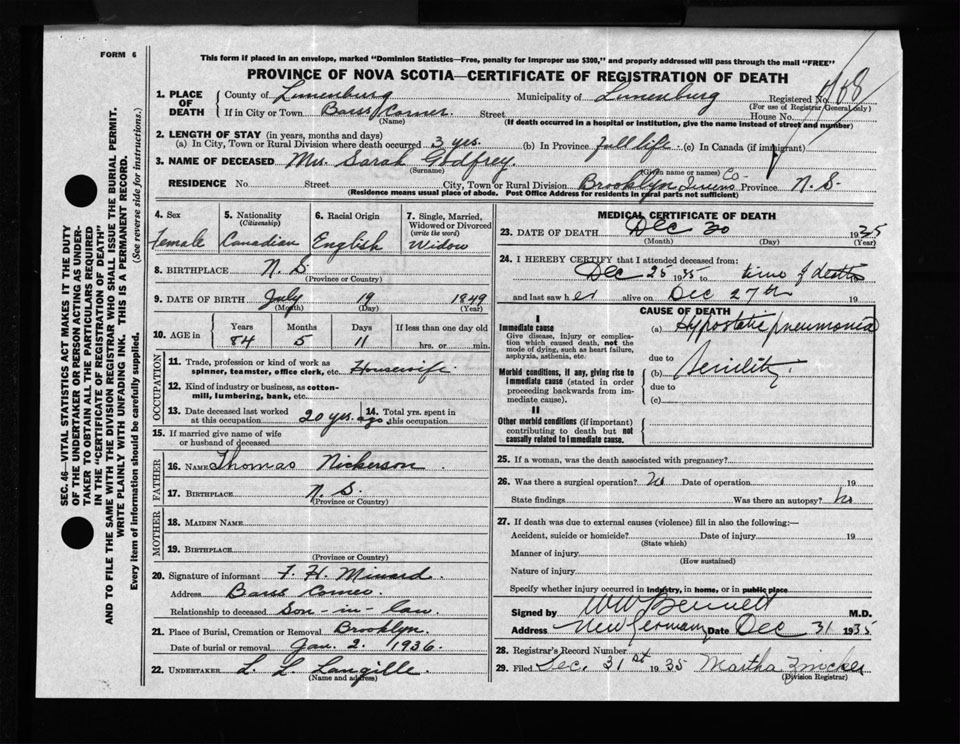 FORM 6
This form if placed in an envelope, marked "Dominion Statistics—Free, penalty for improper use $300," and properly addressed will pass through the mail "FREE"
PROVINCE OF NOVA SCOTIA—CERTIFICATE OF REGISTRATION OF DEATH
1. PLACE OF DEATH
County of Lunenburg Municipality of Lunenburg Registered No.
(For use of Registrar General only)
If in City or Town Barss Corner Street House No.
(Name) (If death occurred in a hospital or institution, give the name instead of street and number)
2. LENGTH OF STAY (in years, months and days)
(a) In City, Town or Rural Division where death occurred 3 yrs. (b) In Province full life (c) In Canada (if immigrant)
3. NAME OF DECEASED Mrs. Sarah Godfrey
(Surname) (Given name or names)
RESIDENCE No. Street City, Town or Rural Division Brooklyn Queens Co- Province N. S.
(Residence means usual place of abode. Post Office Address for residents in rural parts not sufficient)
4. Sex
Female
5. Nationality
(Citizenship)
Canadian
6. Racial Origin
English
7. Single, Married, Widowed or Divorced
(write the word)
Widow
8. BIRTHPLACE N. S.
(Province or Country)
9. DATE OF BIRTH July 19 1849
(Month) (Day) (Year)
10. AGE in Years Months Days If less than one day old
84 5 11 hrs. or min.
OCCUPATION
11. Trade, profession or kind of work as
spinner, teamster, office clerk, etc. Housewife
12. Kind of industry or business, as cotton-
mill, lumbering, bank, etc.
13. Date deceased last worked
at this occupation 20 yrs. ago
14. Total yrs. spent in
this occupation
15. If married give name of wife
or husband of deceased
FATHER
16. NAME Thomas Nickerson
17. BIRTHPLACE N. S.
(Province or Country)
MOTHER
18. MAIDEN NAME
19. BIRTHPLACE
(Province or Country)
20. Signature of informant F. H. Minard
Address Barss Corner
Relationship to deceased Son-in-law
21. Place of Burial, Cremation or Removal Brooklyn.
Date of burial or removal Jan. 2. 1936.
22. UNDERTAKER L. L. Langille
(Name and address)
MEDICAL CERTIFICATE OF DEATH
23. DATE OF DEATH Dec 30 1935
(Month) (Day) (Year)
24. I HEREBY CERTIFY that I attended deceased from:
Dec 25 1935 to time of death 19
and last saw her alive on Dec 27th 19
CAUSE OF DEATH
I
Immediate cause
Give disease, injury or complica-
tion which caused death, not the
mode of dying, such as heart failure,
asphyxia, asthenia, etc.
(a) Hypostatic pneumonia
due to
Morbid conditions, if any, giving rise to
immediate cause (stated in order
proceeding backwards from im-
mediate cause).
(b) Senility
due to
(c)
II
Other morbid conditions (if important)
contributing to death but not
causally related to immediate cause.
25. If a woman, was the death associated with pregnancy?
26. Was there a surgical operation? No Date of operation 19
State findings Was there an autopsy? No
27. If death was due to external causes (violence) fill in also the following:—
Accident, suicide or homicide? Date of injury 19
(State which)
Manner of injury
(How sustained)
Nature of injury
Specify whether injury occurred in industry, in home, or in public place
Signed by W W Bennett M.D.
Address New Germany Date Dec 31 1935
28. Registrar's Record Number
29. Filed Dec. 31st 1935 Martha Zincker
(Division Registrar)
SEC. 46—VITAL STATISTICS ACT MAKES IT THE DUTY
OF THE UNDERTAKER OR PERSON ACTING AS UNDER-
TAKER TO OBTAIN ALL THE PARTICULARS REQUIRED
IN THE "CERTIFICATE OF REGISTRATION OF DEATH"
AND TO FILE THE SAME WITH THE DIVISION REGISTRAR WHO SHALL ISSUE THE BURIAL PERMIT.
WRITE PLAINLY WITH UNFADING INK. THIS IS A PERMANENT RECORD.
Every item of information should be carefully supplied. (See reverse side for instructions.)